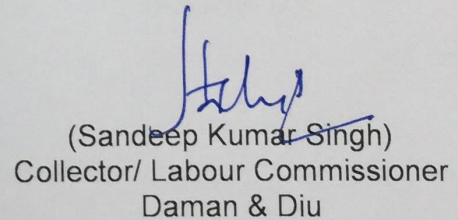 (Sandeep Kumar Singh)
Collector/ Labour Commissioner
Daman & Diu